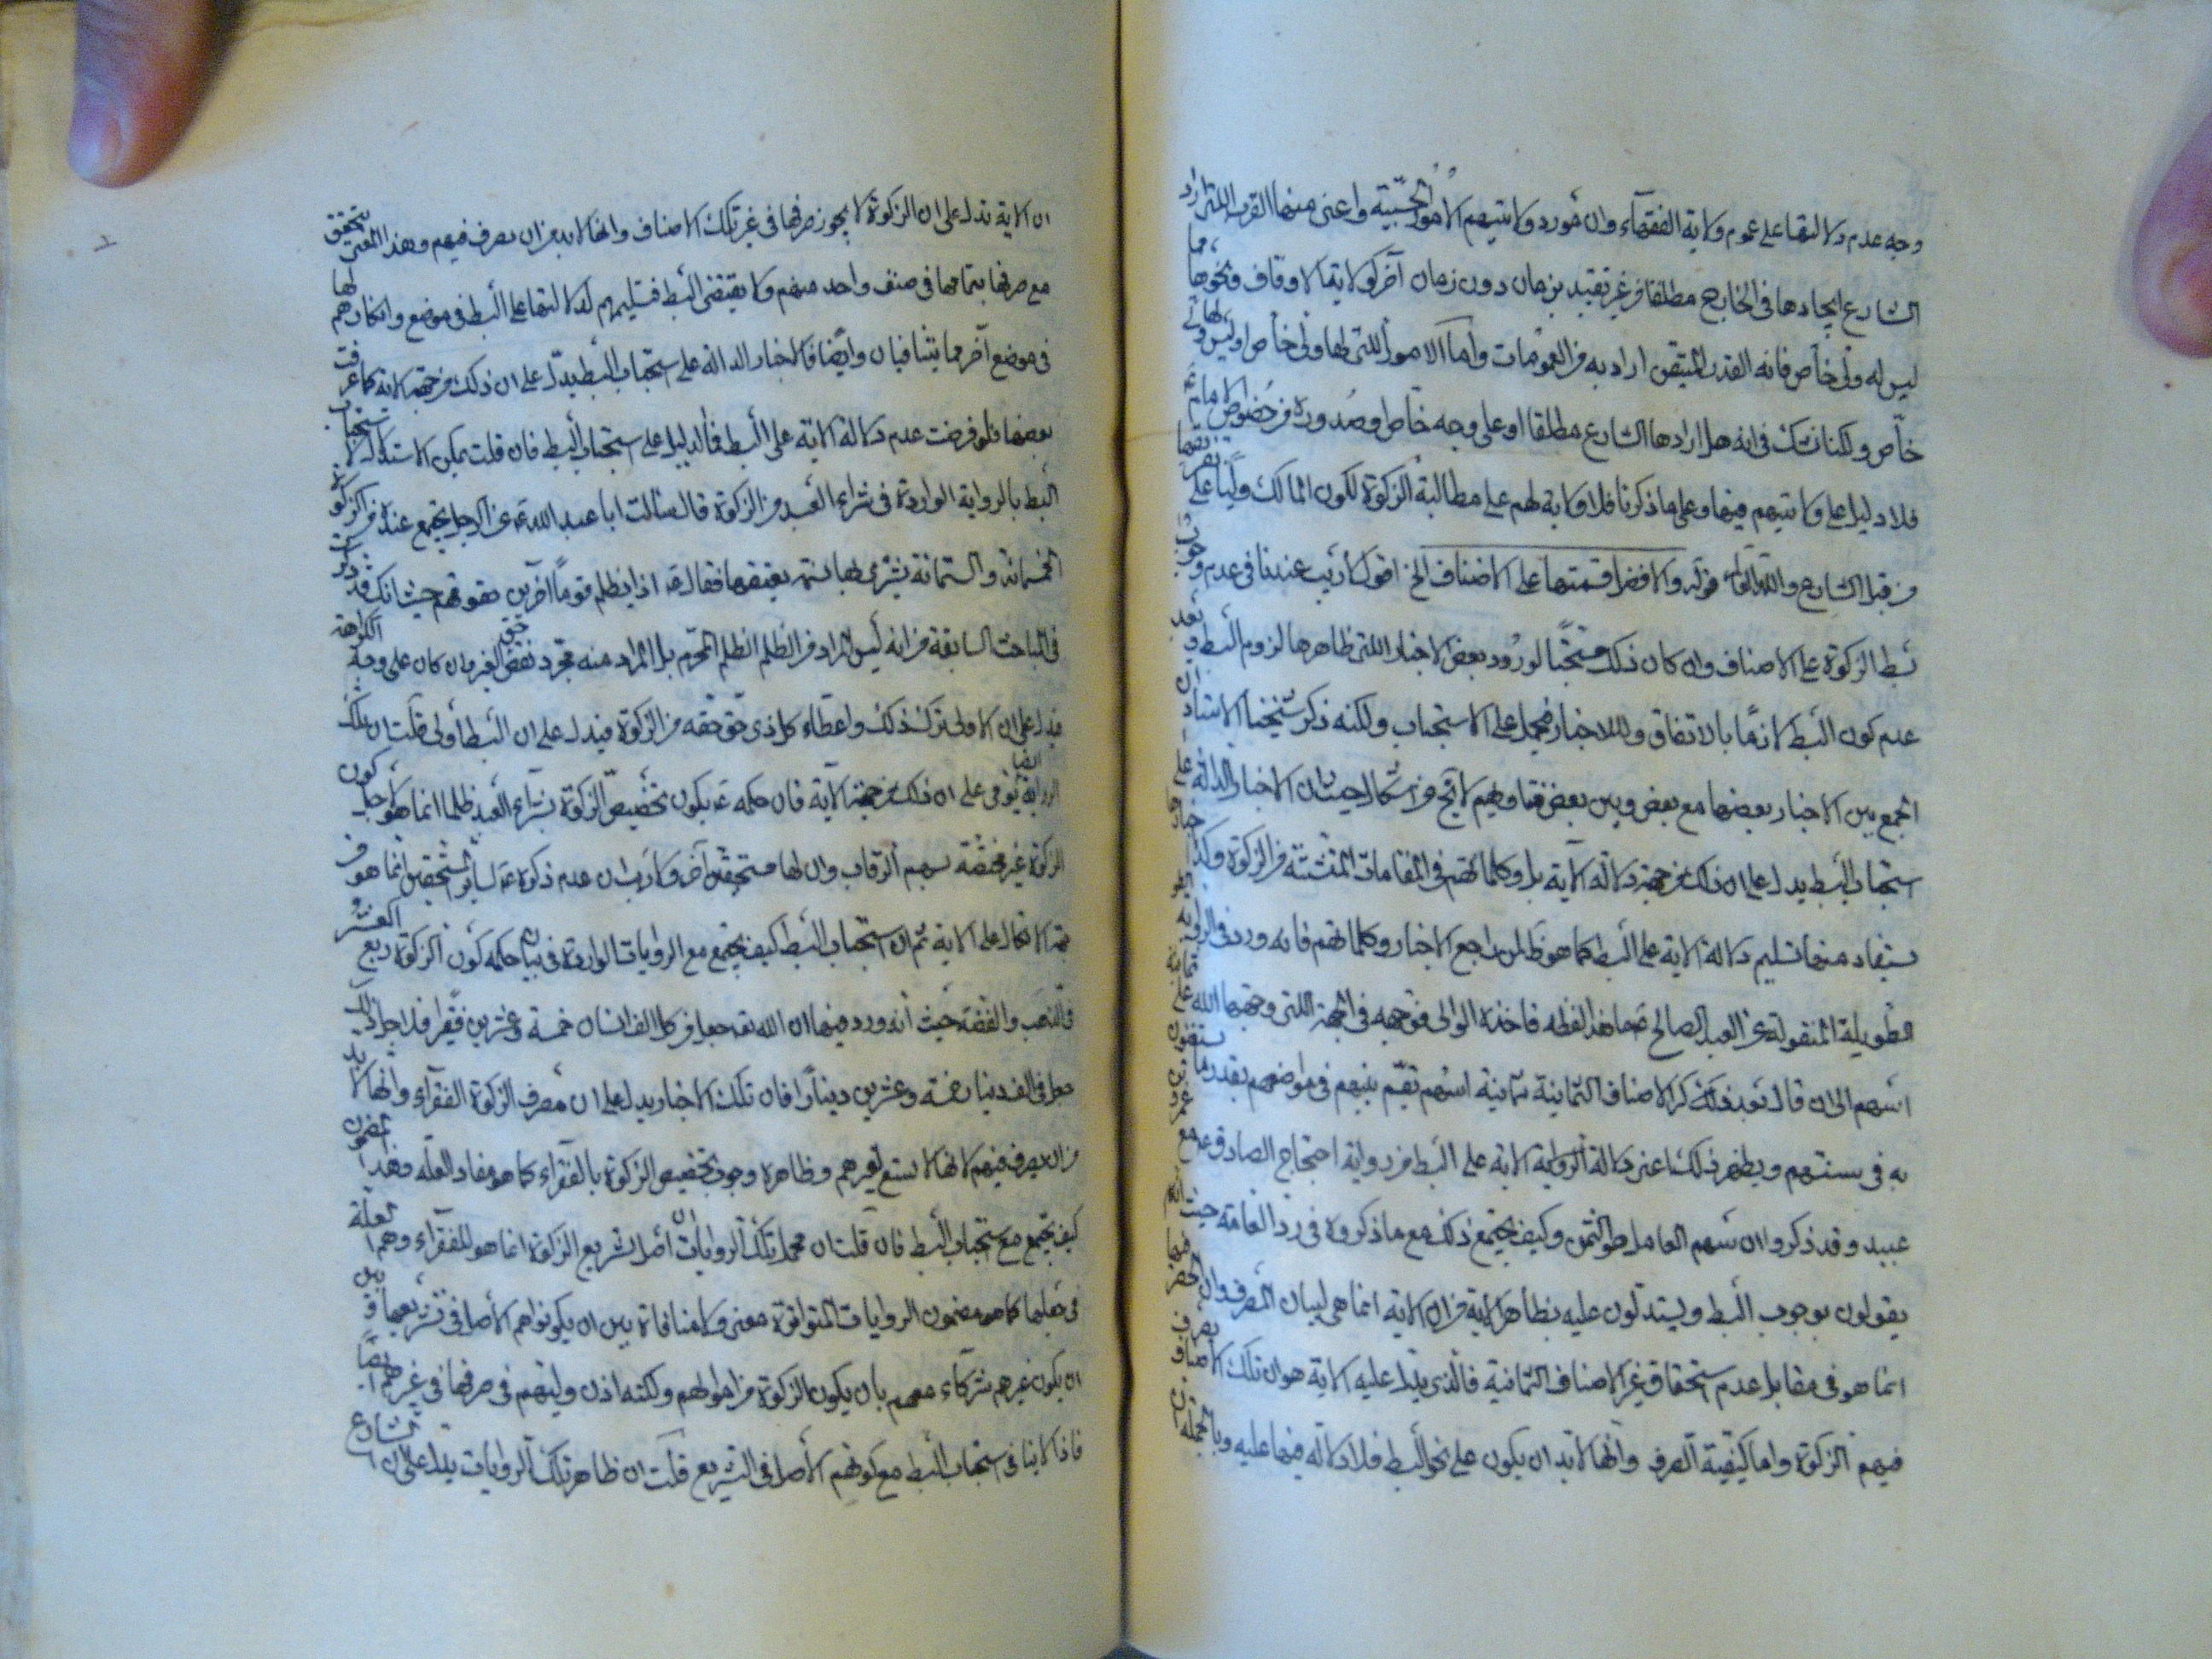 وجه عدم دلالتها على عموم ولاية الفقهآء وان مورد ولايتهم الامور الحسبية واعنى منها القرب اللتى اراد
الشارع ايجادها فى الخارج مطلقا من غير تقييد بزمان دون زمان آخر كولاية الاوقاف ونحوها مما
ليس له ولى خاص فانه القدر المتيقن اراد به من العمومات واما الامور اللتى لها ولى خاص او ليس لها ولى
خاص ولكنا نشك فى انه هل ارادها الشارع مطلقا او على وجه خاص وصدوره من خصوص الامام
فلا دليل على ولايتهم فيها وعلى ما ذكرنا فلا ولاية لهم على مطالبة الزكوة لكون المالك وليا على تفريقها
من قبل الشارع والله العالم قوله والافضل قسمتها على الاصناف الخ اقول لا ريب عندنا فى عدم وجوب
بسط الزكوة على الاصناف وان كان ذلك مستحبا لورود بعض الاخبار اللتى ظاهرها لزوم البسط وبعد
عدم كون البسط لازما بالاتفاق وللاخبار فيحمل على الاستحباب ولكنه ذكر شيخنا الاستاد ان
الجمع بين الاخبار بعضها مع بعض وبين بعض فتاويهم لا يخ من اشكال حيث ان الاخبار الدالة على
استحباب البسط يدل على ان ذلك من جهة دلالة الآية بل وكلماتهم فى المقامات المتشتتة من الزكوة وكذا الاخبار
يستفاد منها تسليم دلالة الاية على البسط كما هو ظ لمن راجع الاخبار وكلماتهم فانه ورد فى الرواية
الطويلة المنقولة عن العبد الصالح ع ما هذا لفظه فاخذه الوالى فوجهه فى الجهة اللتى وجهها الله على ثمانية
اسهم الى ان قال بعد ذكر الاصناف الثمانية ثمانية اسهم تقسم بينهم فى مواضعهم بقدر ما يستغنون
به فى سنتهم ويظهر ذلك اعنى دلالة الرواية الاية على البسط من رواية احتجاج الصادق ع مع عمرو بن
عبيد وقد ذكروا ان سهم العامل هو الثمن وكيف يجتمع ذلك مع ما ذكروه فى رد العامة حيث انهم
يقولون بوجوب البسط ويستدلون عليه بظاهر الاية من ان الاية انما هى لبيان المصرف وان الحصر فيها
انما هو فى مقابل عدم استحقاق غير الاصناف الثمانية فالذى يدل عليه الاية هو ان تلك الاصناف يصرف
فيهم الزكوة واما كيفية الصرف وانها لا بد ان يكون على نحو البسط فلا دلالة فيها عليه وبالجملة
ان الاية تدل على ان الزكوة لا يجوز صرفها فى غير تلك الاصناف وانها لا بد من ان يصرف فيهم وهذا المعنى يتحقق
مع صرفها بتمامها فى صنف واحد منهم ولا يقتضى البسط فتسليمهم لدلالتها على البسط فى موضع وانكارهم لها
فى موضع آخر مما يتنافيان وايضا فالاخبار الدالة على استحباب البسط يدل على ان ذلك من جهة الاية كما عرفت
بعضها فلو فرضت عدم دلالة الاية على البسط فما الدليل على استحباب البسط فان قلت يمكن الاستدلال لاستحباب
البسط بالرواية الواردة فى شراء العبد من الزكوة قال سالت ابا عبد الله ع عن الرجل يجتمع عنده من الزكوة
الخمسمائة والستمائة يشترى بها نسمة يعتقها فقال ع اذا يظلم قوما آخرين حقوقهم حيث انك قد عرفت
فى المباحث السابقة من انه ليس المراد من الظلم الظلم المحرم بل المراد منه مجرد نقض حق الغير وان كان على وجه الكراهة
فيدل على ان الاولى ترك ذلك واعطاء كل ذى حق حقه من الزكوة فيدل على ان البسط اولى قلت ان تلك
الرواية ايضا يومى على ان ذلك من جهة الآية فان حكمه ع بكون تخصيص الزكوة بشراء العبد ظلما انما هو لاجل كون
الزكوة غير مختصة بسهم الرقاب وان لها مستحقين آخر ولا ريب ان عدم ذكره ع لساير المستحقين انما هو من
جهة الاتكال على الاية ثم ان استحباب البسط كيف يجتمع مع الروايات الواردة فى بيان حكمة كون الزكوة ربع العشر
فى الذهب والفضة حيث انه ورد فيها ان الله تعالى جعل من كل الف انسان خمسة وعشرين فقيرا فلاجل ذلك
جعل فى الف دينار خمسة وعشرين دينارا فان تلك الاخبار يدل على ان مصرف الزكوة الفقرآء وانها لا بد
من ان يصرف فيهم لانها لا يسع لغيرهم وظاهره وجوب تخصيص الزكوة بالفقرآء كما هو مفاد العلة وهذا المضمون
كيف يجتمع مع استحباب البسط فان قلت ان محمل تلك الروايات ان اصل تشريع الزكوة انما هو للفقرآء وهم العلة
فى جعلها كما هو مضمون الروايات المتواترة معنى ولا منافاة بين ان يكونوا هم الاصل فى تشريعها وبين
ان يكون غيرهم شركاء معهم بان يكون الزكوة من اموالهم ولكنه اذن وليهم فى صرفها فى غيرهم ايضا
فاذا لا ينافى استحباب البسط مع كونهم الاصل فى التشريع قلت ان ظاهر تلك الروايات يدل على ان الشارع